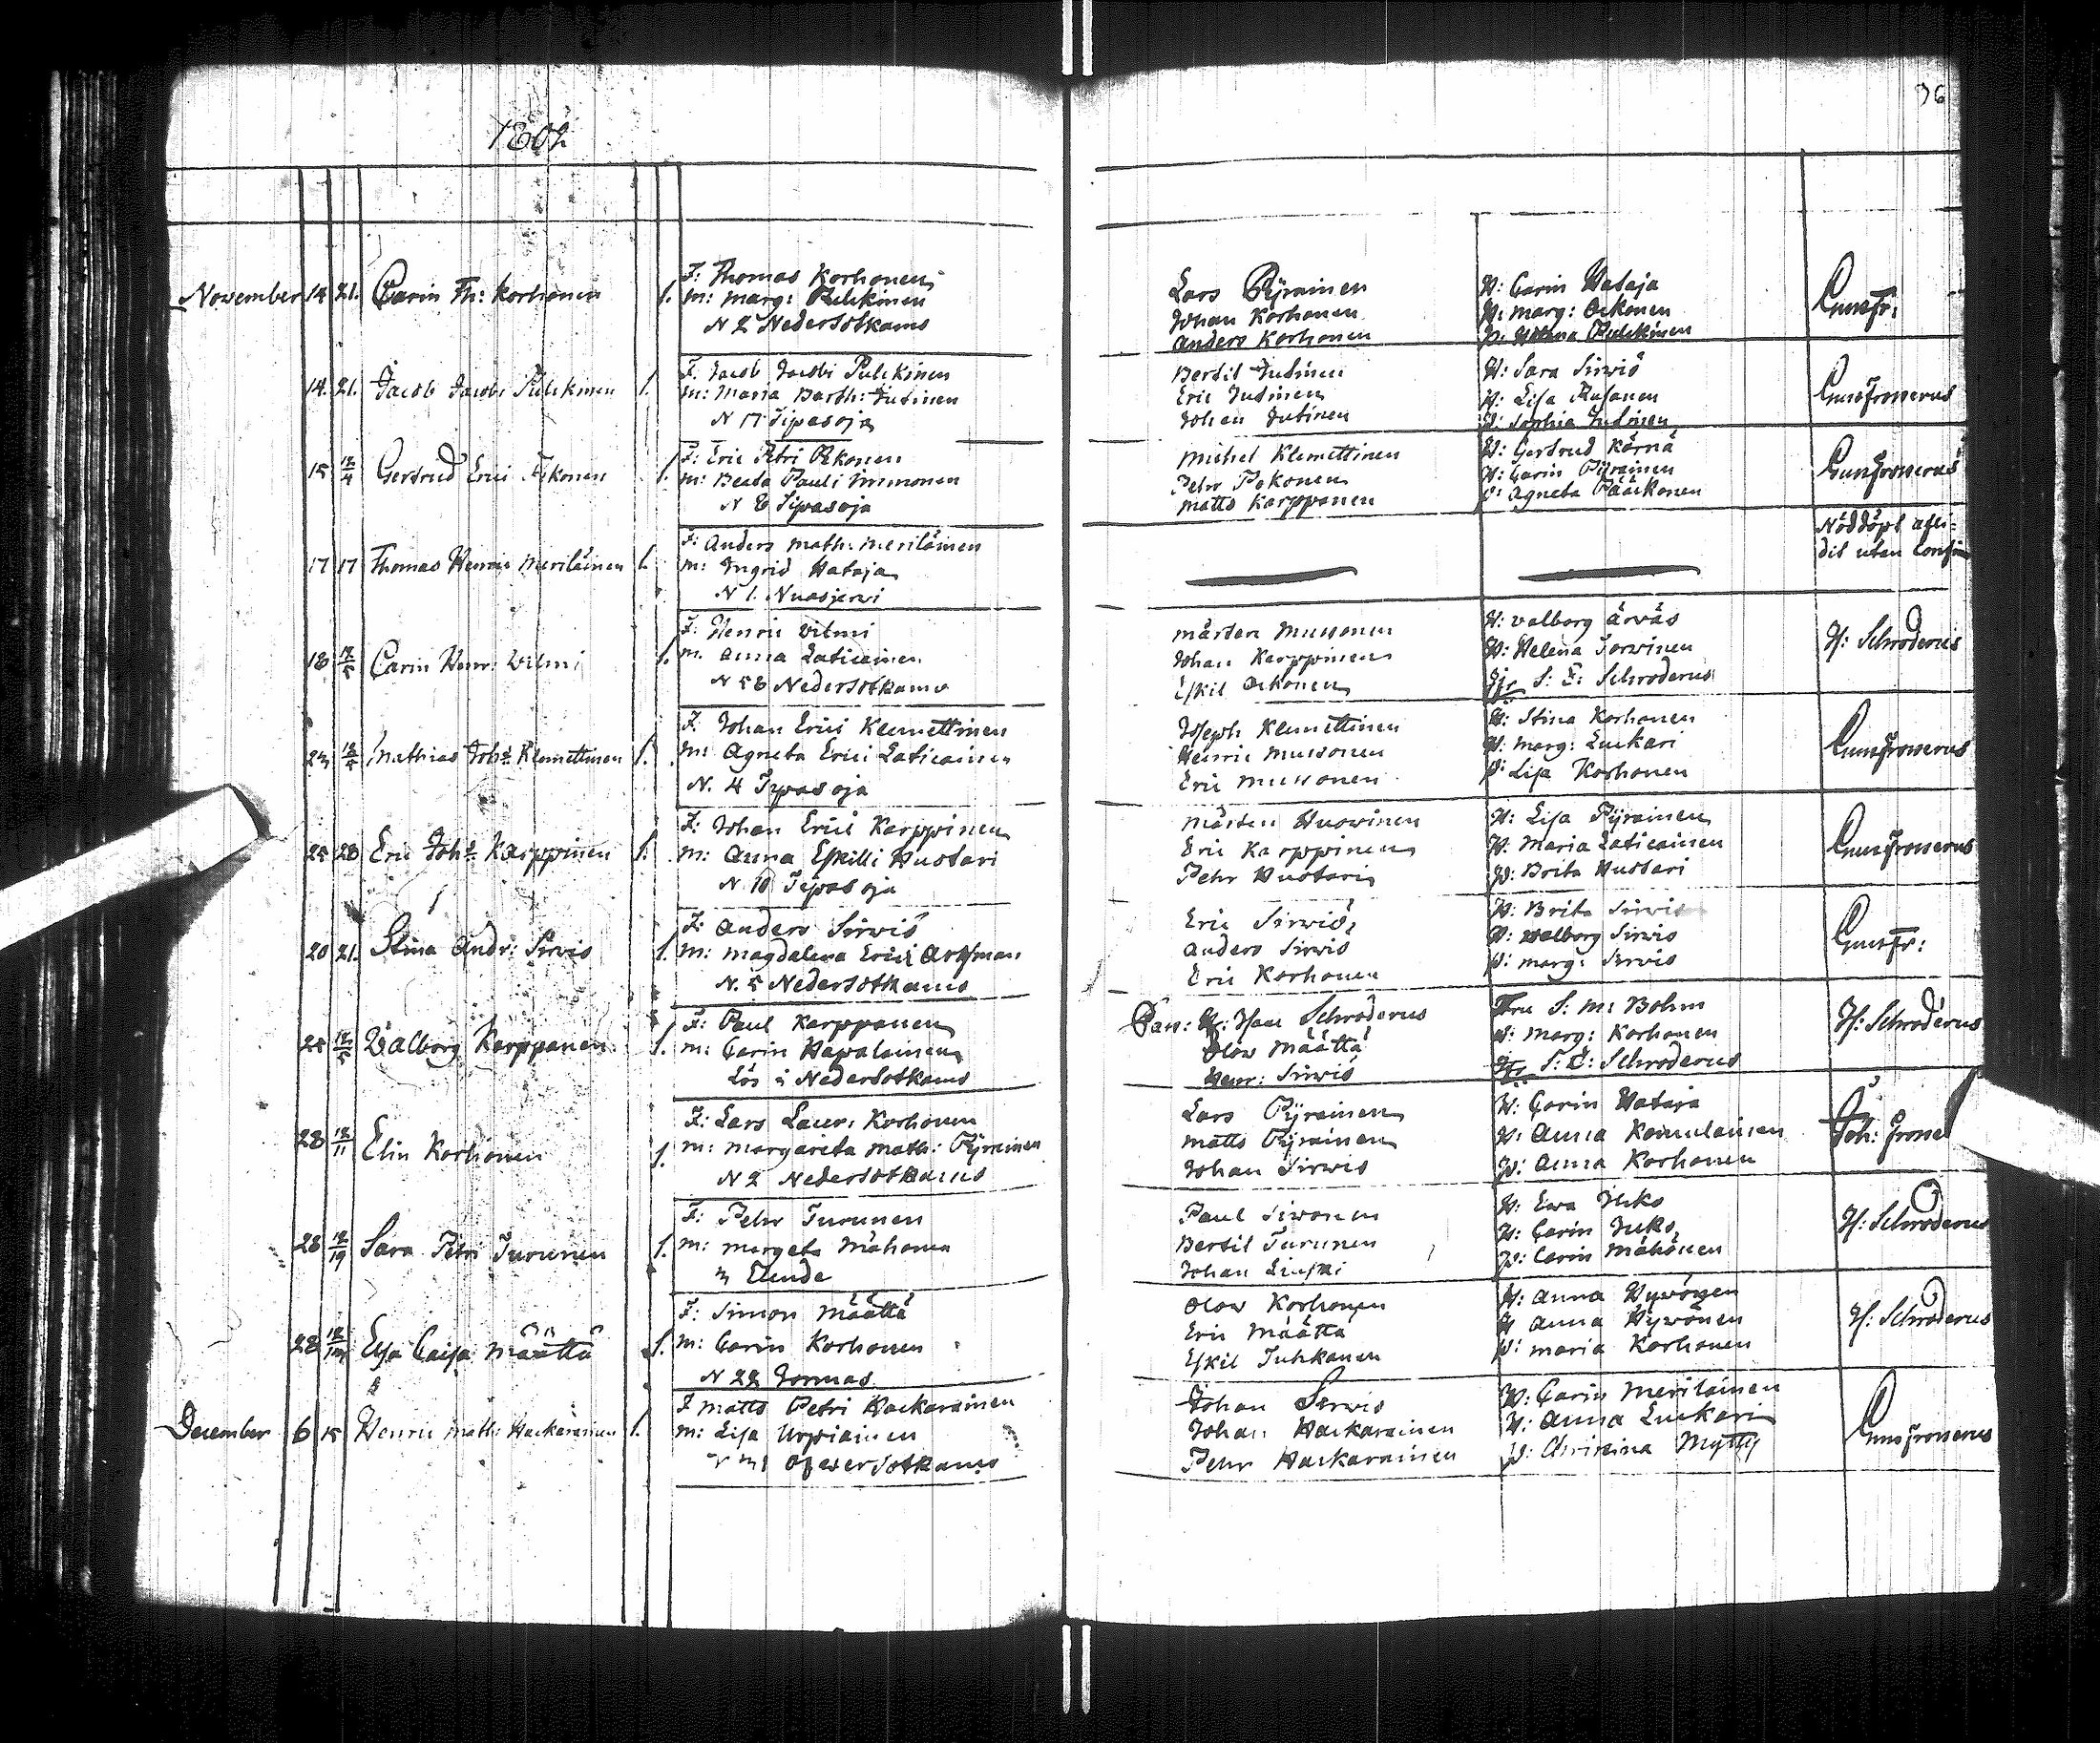 1802
36
November 14 21. Carin Th: Korhonen 1.
F: Thomas Korhonen
m: Marg: Pulckinen
N 2 Nedersotkamo
Lars Pyrainen
Johan Korhonen
Anders Korhonen
H: Carin Hataja
H: Marg: Ockonen
P: Helena Pulckinen
Cunofr:
14. 21. Jacob Jacobi Pulckinen 1.
F. Jacob Jacobi Pulckinen
m: Maria Barth: Jutinen
N 17 Tipasoja
Bertil Jutinen
Eric Jutinen
Johan Jutinen
H: Sara Sirwiö
H: Lisa Rusanen
P: Sophia Jutinen
Gunofronerus
15 12/4 Gertrud Erici Pekonen 1.
F: Eric Petri Pekonen
m: Beata Pauli Immonen
N 8 Tipasoja
Michel Klemettinen
Pehr Pekonen
Matts Karppanen
H: Gertrud Körnä
H: Carin Pyrainen
P: Agneta Pääckonen
Cunofronerus
17 17 Thomas Henric Meriläinen 1.
F: Anders Math: Meriläinen
m: Ingrid Hataja
N 1. Nuasjerwi
Nöddöpt afli-
dit utan
18 12/5 Carin Henr: Wilmi 1.
F: Henric Wilmi
m. Anna Laticainen
N 58 Nedersotkamo
Mårten Mussonen
Johan Karppinen
Eskil Ockonen
H: Valborg Ärväs
H: Helena Torwinen
S: E: Schroderus
H: Schroderus
12/5 Mathias Joh:s Klemettinen 1.
F. Johan Erici Klemettinen
m: Agneta Erici Laticainen
N. 4 Tipasoja
Joseph Klemettinen
Henric Mussonen
Eric Mussonen
H: Stina Korhonen
H. Marg: Luckari
P: Lisa Korhonen
Cunofronerus
25 28 Eric Joh:s Karppinen 1.
F: Johan Erici Karppinen
m: Anna Eskilli Huotari
N. 10 Tipasoja
Mårten Huowinen
Eric Karppinen
Pehr Huotari
H: Lisa Pyrainen
H. Maria Laticainen
P: Brita Huotari
Cunofronerus
20 21. Stina Andr: Sirwiö 1.
F: Anders Sirwiö
m: Magdalena Erici Artman
N. 5 Nedersotkamo
Eric Sirwiö
Anders Sirwiö
Eric Korhonen
H: Brita Sirwiö
H: Walborg Sirwiö
P: Marg: Sirwiö
Cunofr:
25 12/5 Valborg Karppanen 1.
F: Paul Karppanen
m: Carin Hapalainen
Lös i Nedersotkamo
Isac Schroderus
Olow Määttä
Henr: Sirwiö
Fru S. M: Bohm
H: Marg: Korhonen
S: E: Schroderus
H: Schroderus
28 12/11 Elin Korhonen 1.
F: Lars Laur: Korhonen
m: Margareta Math: Pyrainen
N 2 Nedersotkamo
Lars Pyrainen
Matts Pyrainen
Johan Sirwiö
H: Carin Hataja
H: Anna Komulainen
P: Anna Korhonen
Joh: Frone
28 12/19 Sara Petri Turunen 1.
F: Pehr Turunen
m: Margeta Mähönen
Paul Siwonen
Bertil Turunen
Johan
H: Ewa Juko
H: Carin Juko
P: Carin Mähönen
H: Schroderus
28 Lisa Caisa Määttä 1.
F: Simon Määttä
m: Carin Korhonen
N 22 Jormas
Olow Korhonen
Eric Määttä
Eskil Tuhkanen
H: Anna Hywönen
H Anna Hywönen
P: Maria Korhonen
H: Schroderus
December 6 15 Henric Math: Hackarainen 1.
F Matts Petri Hackarainen
m: Lisa Urpiainen
Öfwersotkamo
Johan Sirwiö
Johan Hackarainen
Pehr Hackarainen
H: Carin Meriläinen
H: Anna Luckari
P: Christina Mytty
Cunofronerus